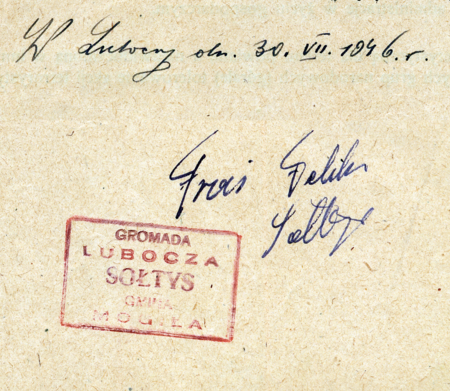 W Luboczy dn. 30. VII. 1946. r.
Fraś Feliks
Sołtys
GROMADA
LUBOCZA
SOŁTYS
GMINA
MOGIŁA